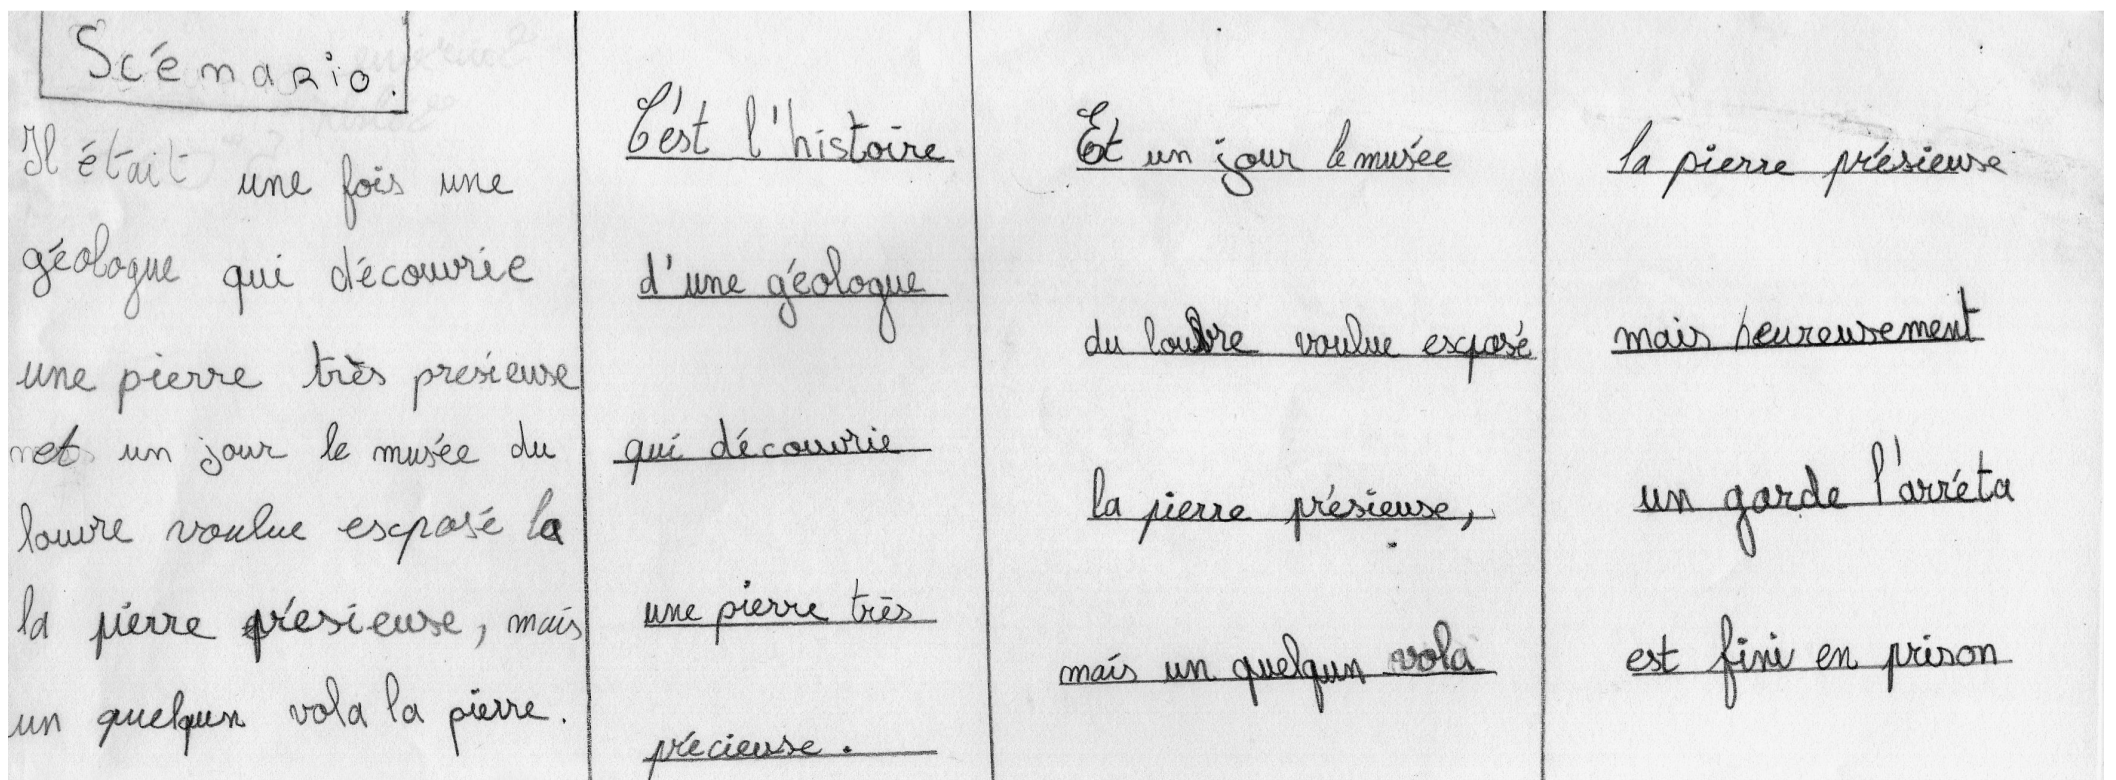 Scénario.
Il était une fois une
géologue qui découvrie
une pierre très presieuse
et un jour le musée du
louvre voulue esposé la
la pierre présieuse, mais
un quelqun vola la pierre.
C'est l'histoire
d'une géologue
qui découvrie
une pierre très
précieuse.
Et un jour le musée
du louvre voulue esposé
la pierre présieuse,
mais un quelqun vola
la pierre présieuse
mais heureusement
un garde l'arréta
est fini en prison